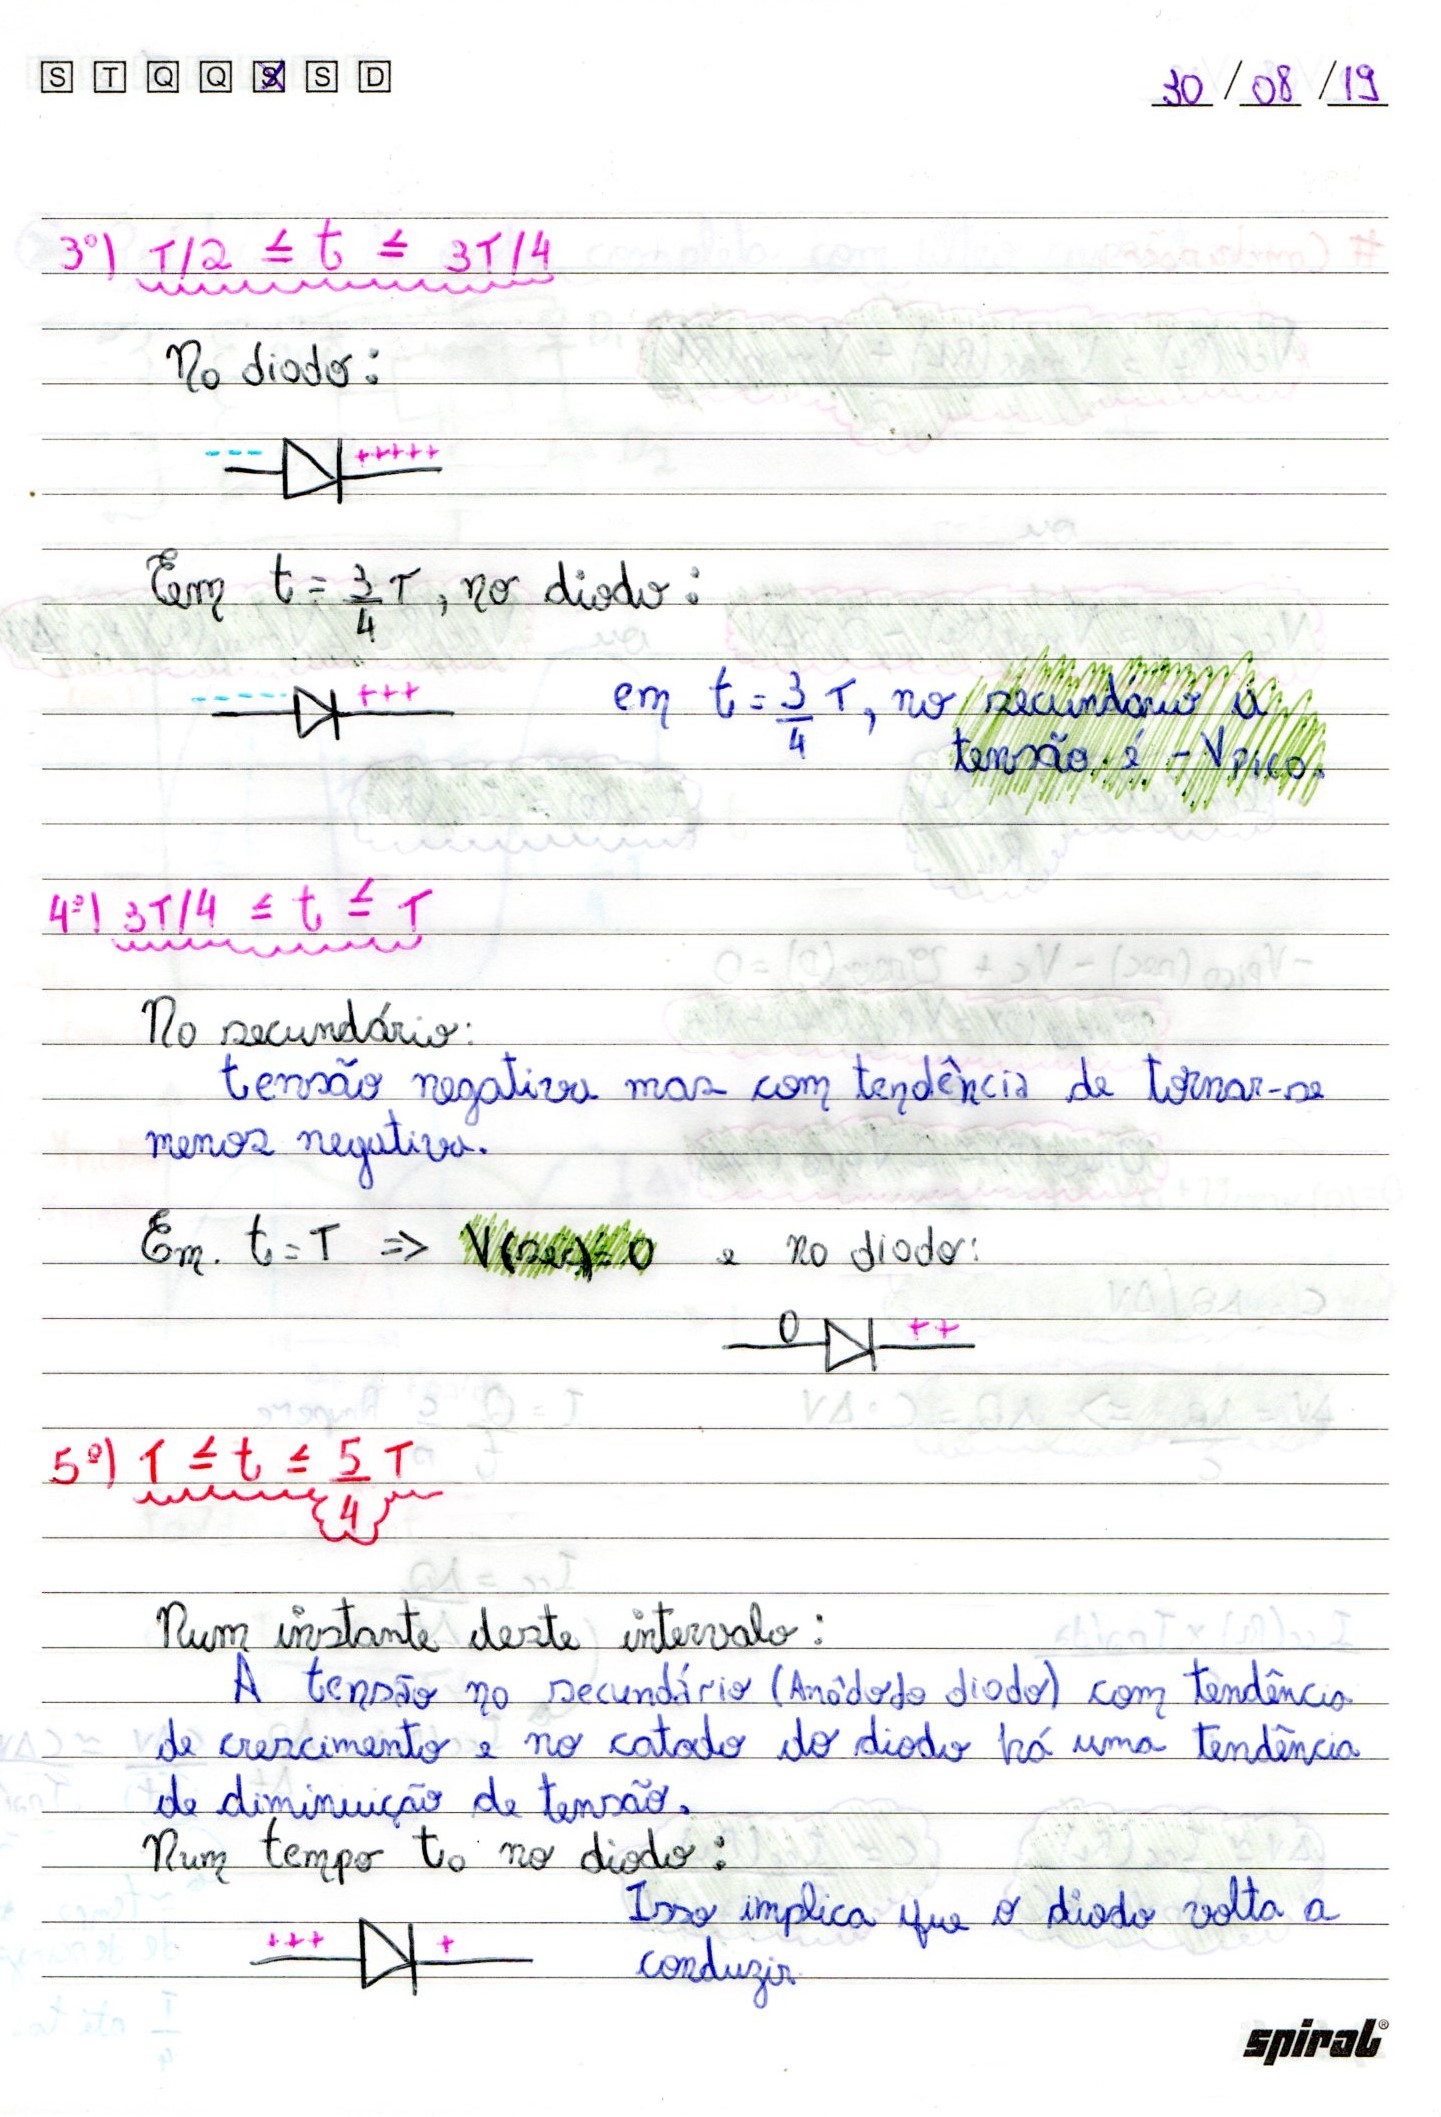 S T Q Q S S D 30/08/19
3º) T/2 ≤ t ≤ 3T/4
No diodo:
--- +++++
Em t = 3/4 T, no diodo:
----- +++
em t = 3/4 T, no secundário a
tensão é -Vpico.
4º) 3T/4 ≤ t ≤ T
No secundário:
tensão negativa mas com tendência de tornar-se
menos negativa.
Em. t = T => V(sec)=0 e no diodo:
0 ++
5º) T ≤ t ≤ 5/4 T
Num instante deste intervalo:
A tensão no secundário (Anôdo do diodo) com tendência
de crescimento e no catodo do diodo há uma tendência
de diminuição de tensão.
Num tempo to no diodo:
+++ +
Isso implica que o diodo volta a
conduzir
spiral®